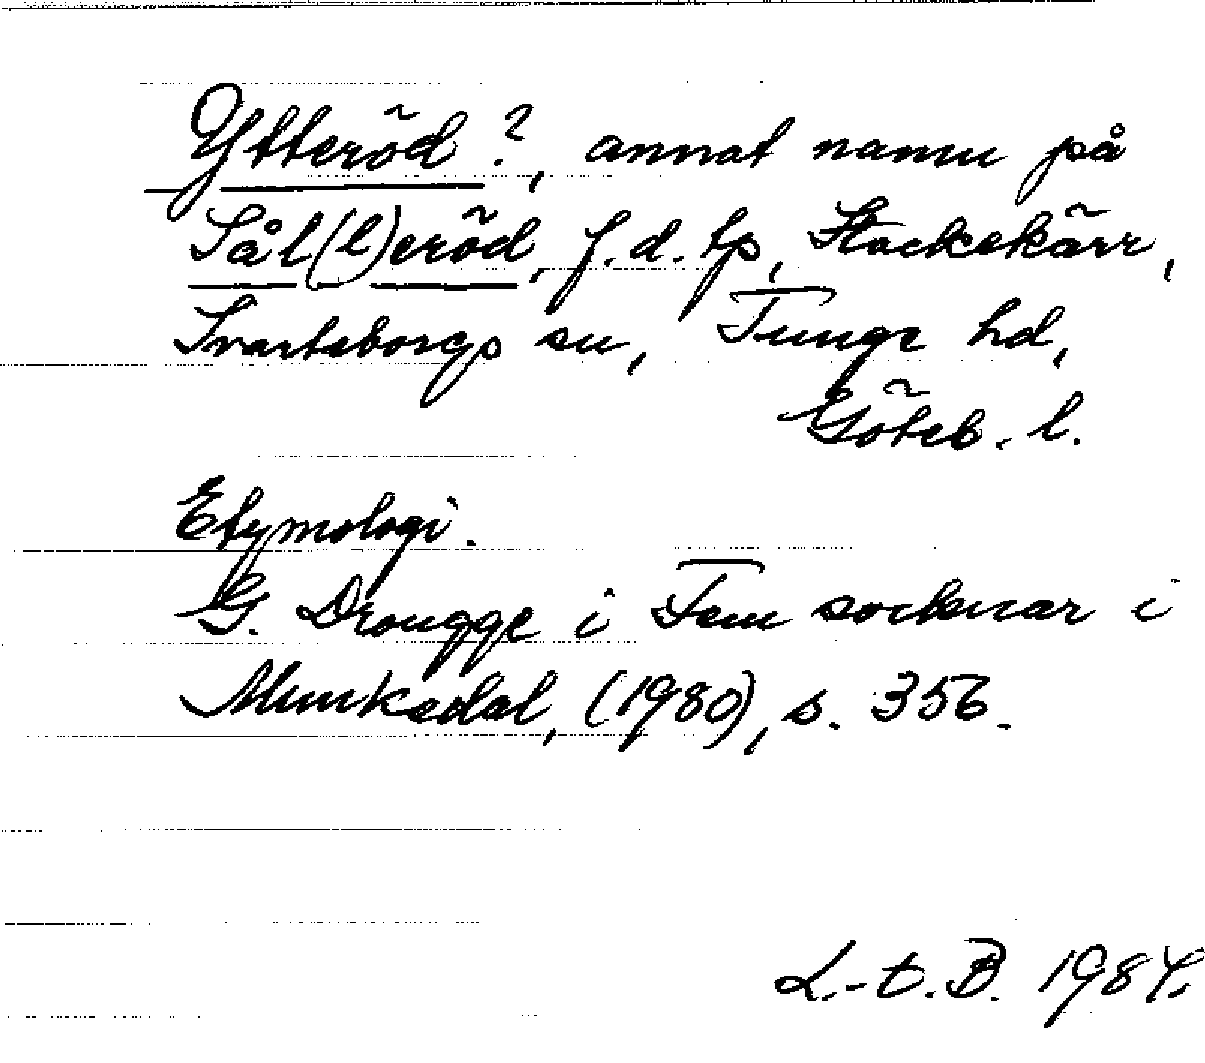 Ytteröd?, annat namn på
Sål(l)eröd, f.d. tp, Stockekärr,
Svarteborgs sn, Tunge hd,
Göteb. l.
Etymologi.
G. Drougge i Fem socknar i
Munkedal, (1980), s. 356.
L.-t.B. 1984.